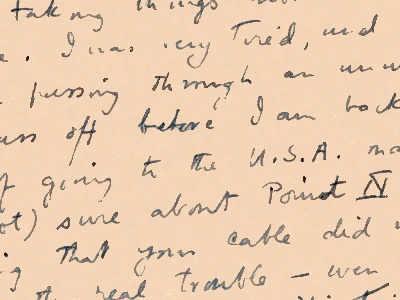 taking things
. I was very Tired, and
passing through an
off before I am back
of going to the U.S.A.
ot) sure about Point IV
that your cable did
real trouble –